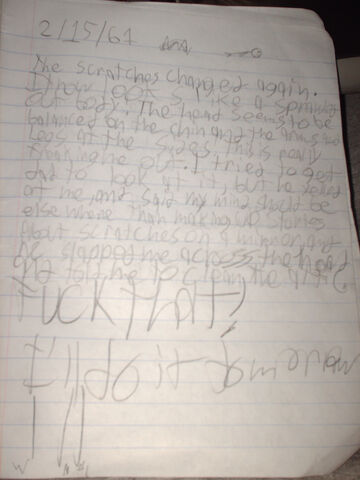 2/15/61
The scratches changed again.
It now looks like a sprawled
out body. The head seems to be
balanced on the chin and the arms and
legs at the sides. This is really
freaking me out. I tried to get
dad to look at it, but he yelled
at me, and said my mind should be
else where than making up stories
about scratches on a mirror, and
he slapped me across the head
and told me to clean the attic.
Fuck that!
I'll do it tomorrow